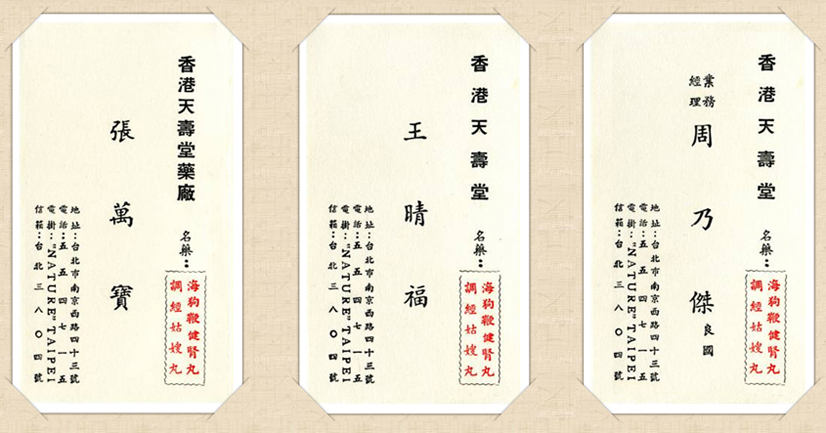 香港天壽堂藥廠
名藥：
海狗鞭健腎丸
調經姑嫂丸
張萬寶
地址：台北市南京西路四十三號
電話：五五四七一五
電掛："NATURE" TAIPEI
信箱：台北三八〇四號
香港天壽堂
名藥：
海狗鞭健腎丸
調經姑嫂丸
王晴福
地址：台北市南京西路四十三號
電話：五五四七一五
電掛："NATURE" TAIPEI
信箱：台北三八〇四號
香港天壽堂
名藥：
海狗鞭健腎丸
調經姑嫂丸
業務
經理
周乃傑
良國
地址：台北市南京西路四十三號
電話：五五四七一五
電掛："NATURE" TAIPEI
信箱：台北三八〇四號